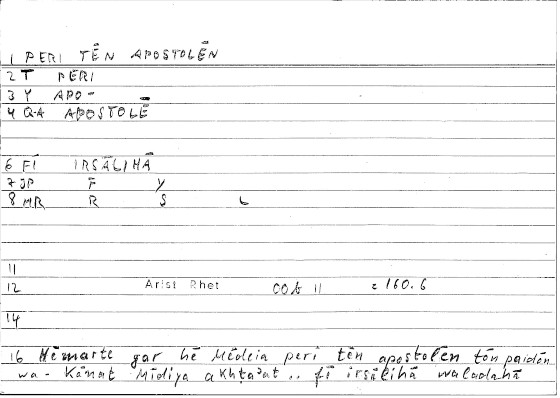 1 PERI TĒN APOSTOLĒN
2 T PERI
3 Y APO-
4 Q-A APOSTOLĒ
6 FĪ IRSĀLIHĀ
7 JP F Y
8 MR R S L
11
12 Arist Rhet COb 11 = 160.6
14
16 Hēmarte gar hē Mēdeia peri tēn apostolēn tōn paidōn
wa-Kānat Mīdiya akhṭaʾat .. fī irsālihā waladahā